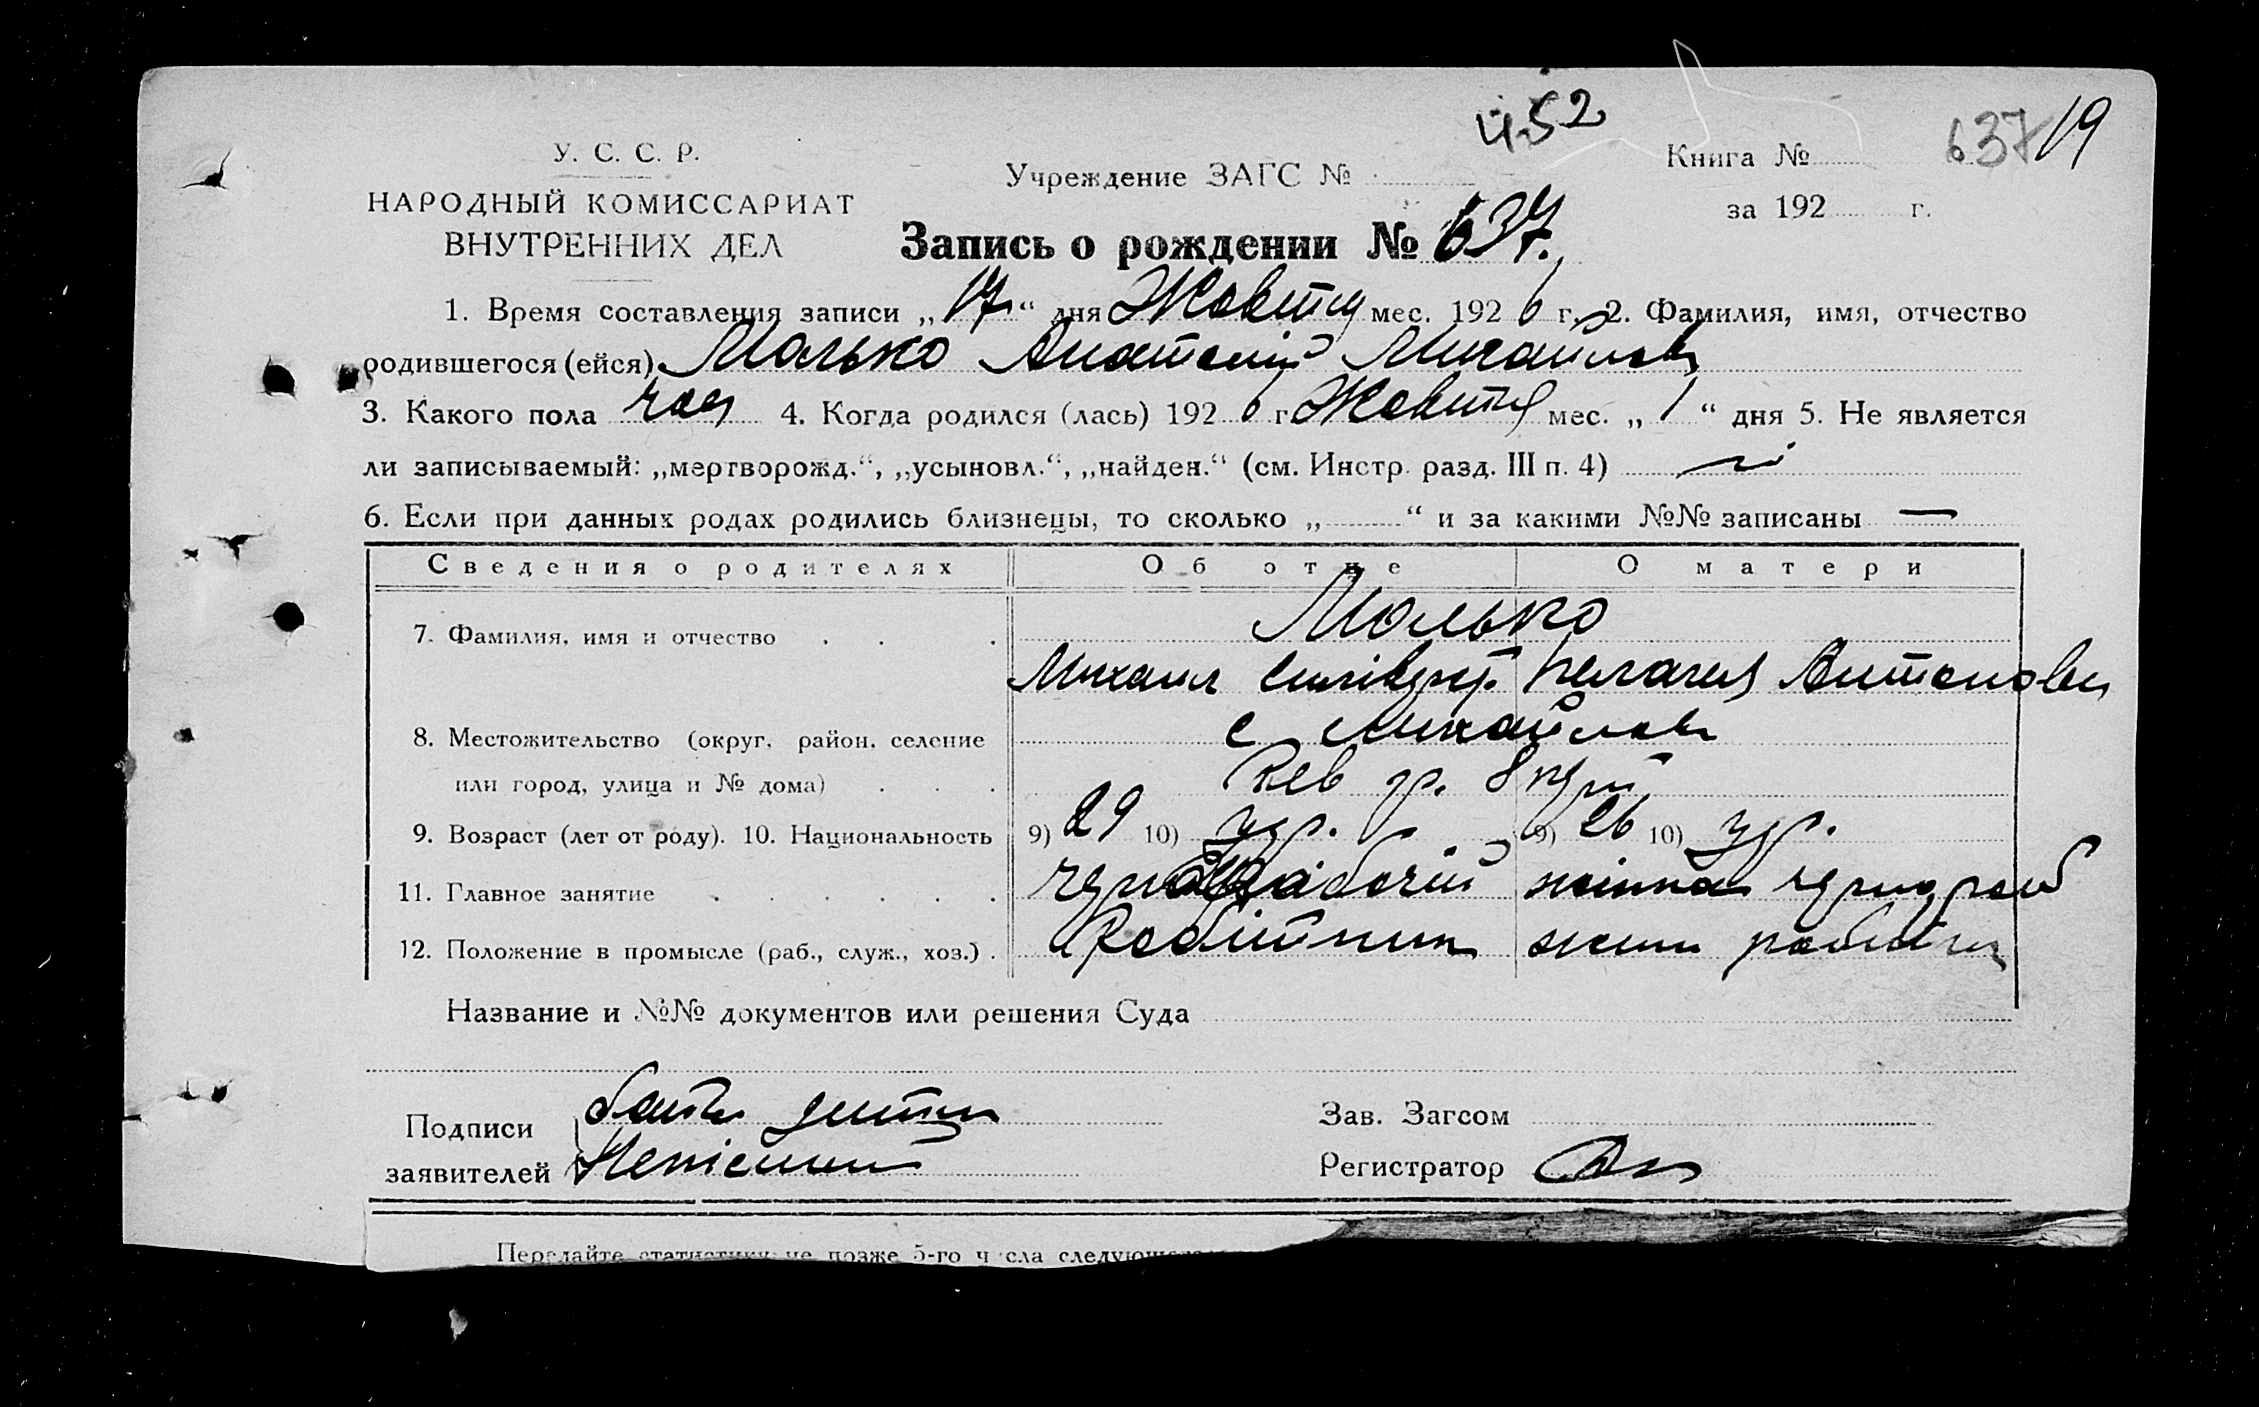 452
637 19
У. С. С. Р.
НАРОДНЫЙ КОМИССАРИАТ
ВНУТРЕННИХ ДЕЛ
Учреждение ЗАГС №
Книга №
за 192 г.
Запись о рождении № 637.
1. Время составления записи „ 17 “ дня Жовтня мес. 192 6 г. 2. Фамилия, имя, отчество
родившегося (ейся) Малько Анатолій Михайлов
3. Какого пола чол 4. Когда родился (лась) 192 6 г Жовтня мес. „ 1 “ дня 5. Не является
ли записываемый: „мертворожд.“, „усыновл.“, „найден.“ (см. Инстр. разд. III п. 4) ні
6. Если при данных родах родились близнецы, то сколько „ “ и за какими №№ записаны —
Сведения о родителях Об отце О матери
7. Фамилия, имя и отчество Малько
Михаил Пелагея Антонов
8. Местожительство (округ, район, селение с Михайлов
или город, улица и № дома)
9. Возраст (лет от роду). 10. Национальность 9) 29 10) укр. 9) 26 10) укр.
11. Главное занятие чернорабочій жінка чернораб
12. Положение в промысле (раб., служ., хоз.) Робітник жінк робітн
Название и №№ документов или решения Суда
Подписи батько дитини
заявителей Неписьмен
Зав. Загсом
Регистратор
Передайте статистику не позже 5-го числа следующего